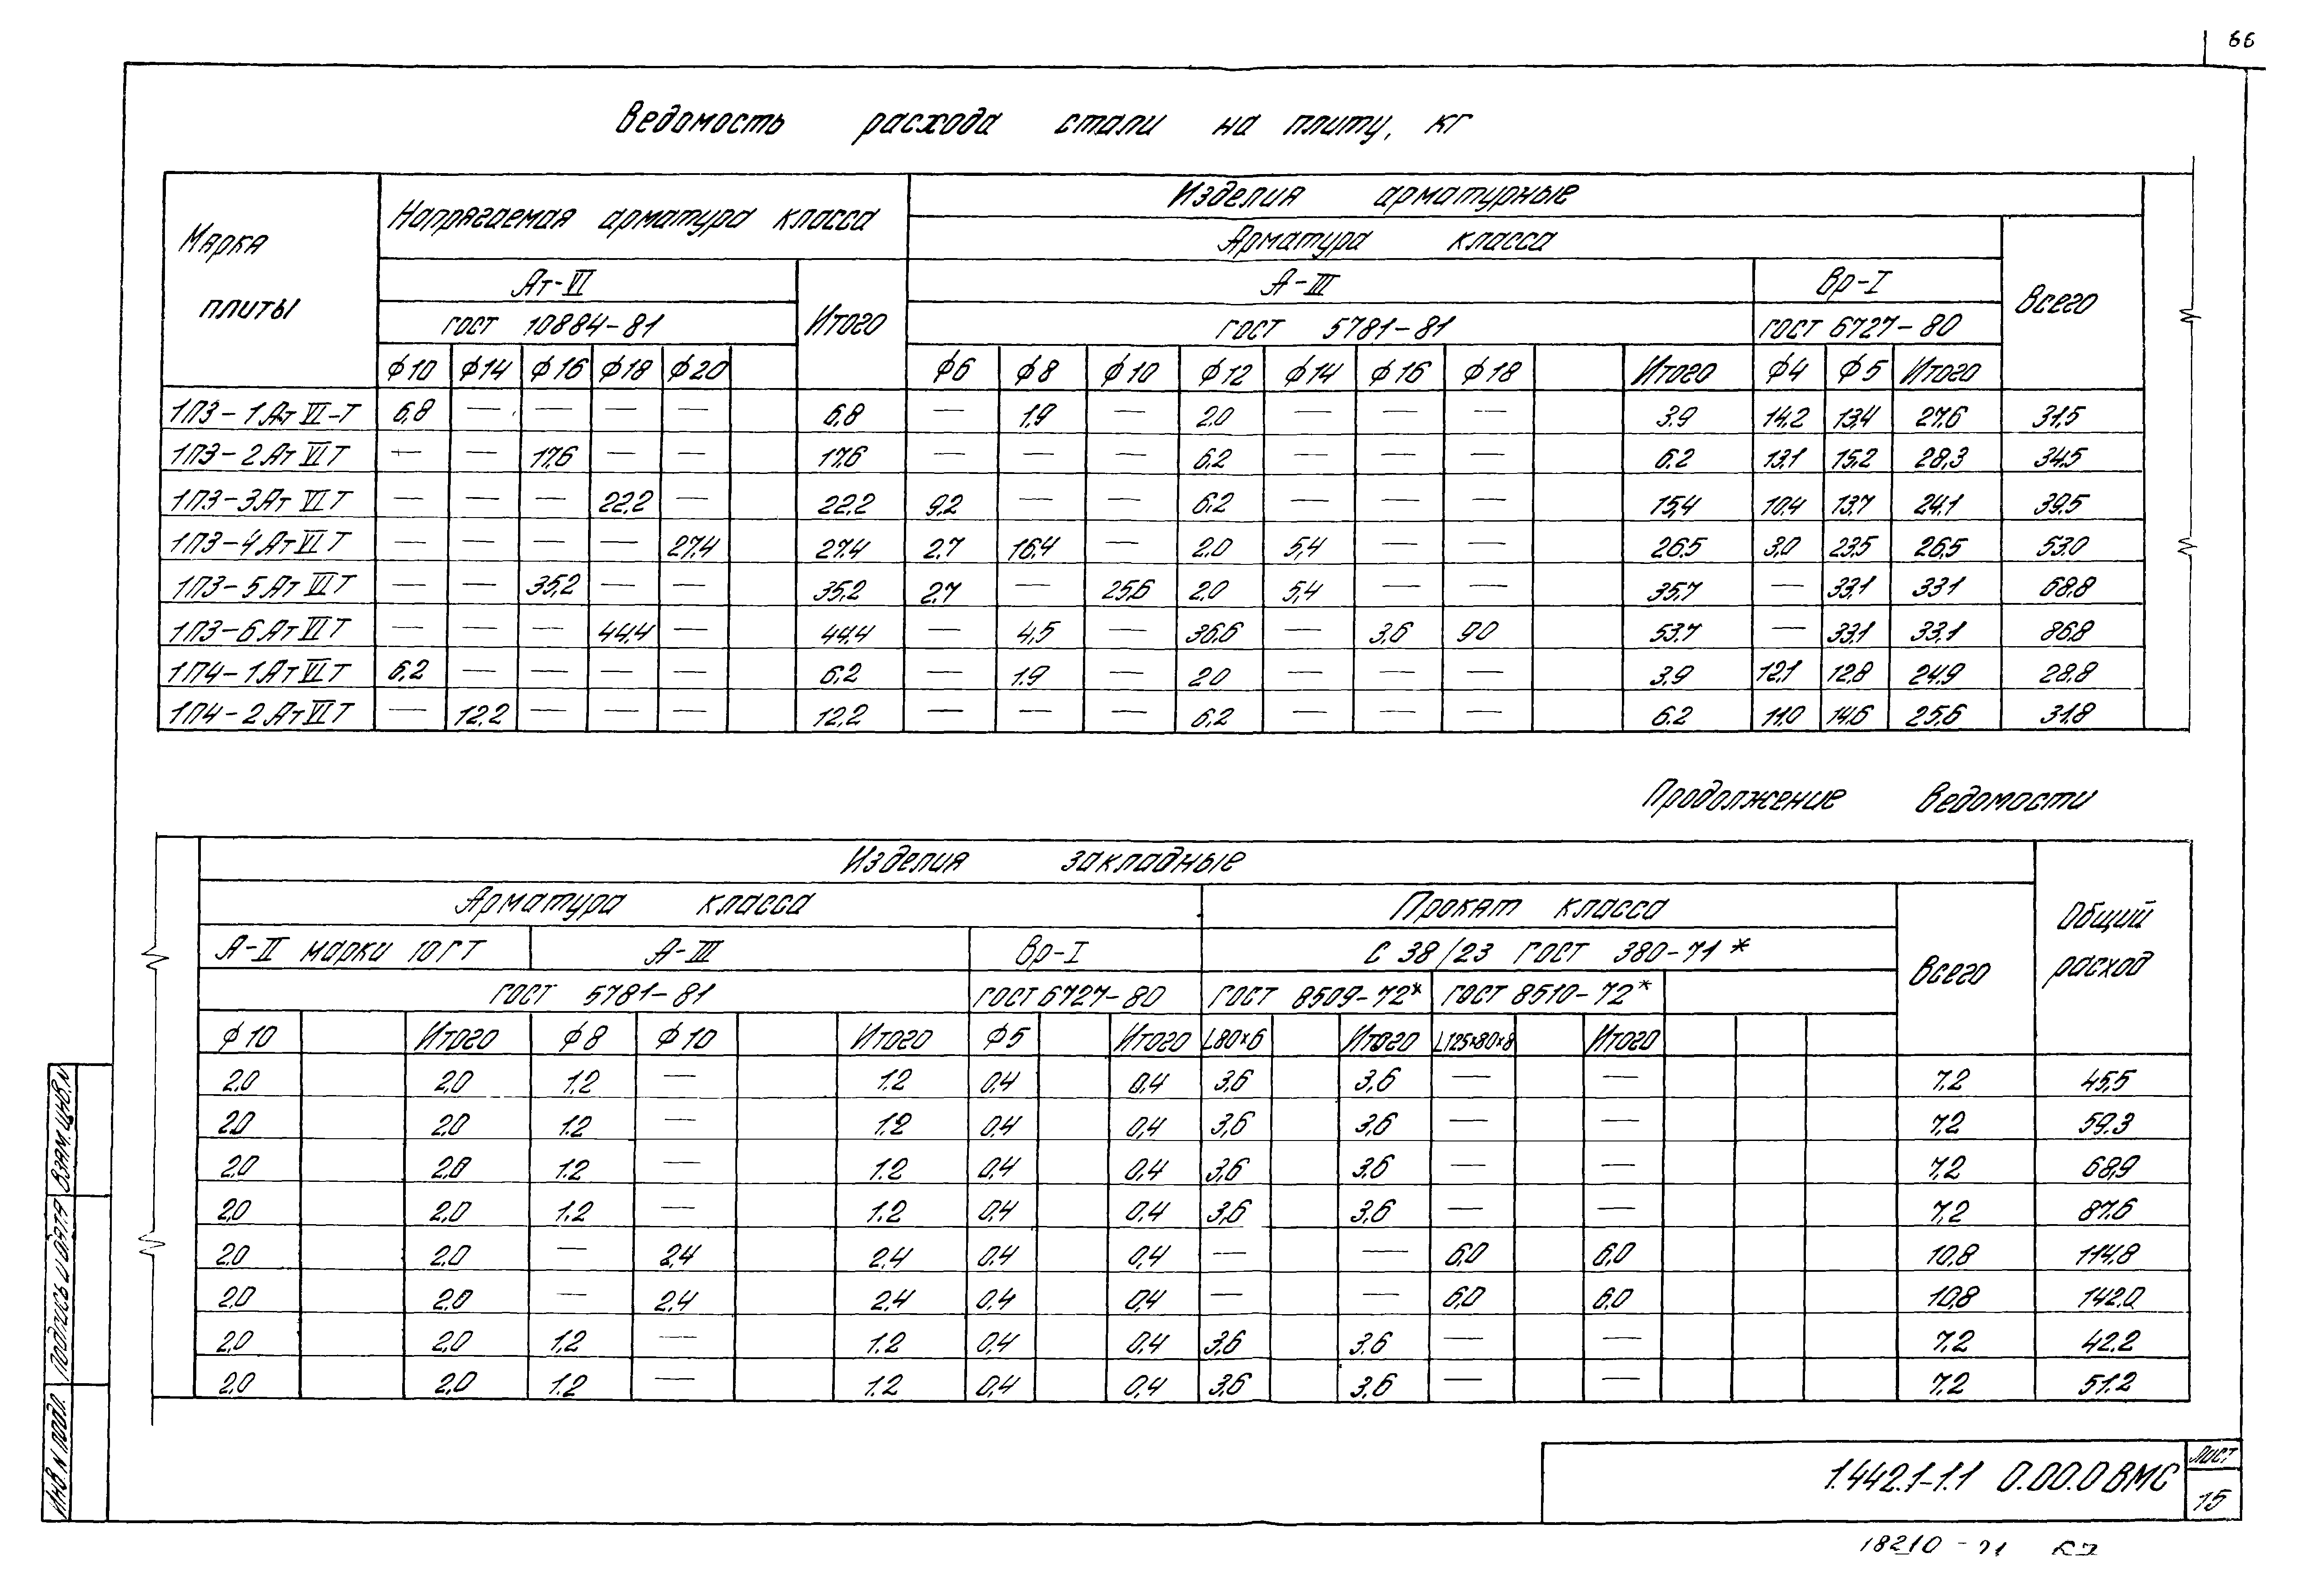 66
Ведомость расхода стали на плиту, кг
Марка плиты
Напрягаемая арматура класса
Изделия арматурные
Арматура класса
Ат-VI
Итого
А-III
Вр-I
Всего
ГОСТ 10884-81
ГОСТ 5781-81
ГОСТ 6727-80
ф10 ф14 ф16 ф18 ф20 ф6 ф8 ф10 ф12 ф14 ф16 ф18 Итого ф4 ф5 Итого
1П3-1Ат VI-Т 6,8 — — — — 6,8 — 1.9 — 2.0 — — — 3.9 14,2 13,4 27.6 31,5
1П3-2Ат VIТ — — 17,6 — — 17,6 — — — 6.2 — — — 6.2 13,1 15,2 28,3 34,5
1П3-3Ат VIТ — — — 22,2 — 22,2 9,2 — — 6,2 — — — 15,4 10,4 13,7 24.1 39,5
1П3-4Ат VIТ — — — — 27,4 27,4 2,7 16,4 — 2.0 5,4 — — 26.5 3,0 23,5 26,5 53,0
1П3-5Ат VIТ — — 35,2 — — 35,2 2,7 — 25,6 2,0 5,4 — — 35,7 — 33,1 33.1 68,8
1П3-6Ат VIТ — — — 44,4 — 44,4 — 4,5 — 36,6 — 3,6 9.0 53.7 — 33,1 33,1 86,8
1П4-1Ат VIТ 6,2 — — — — 6,2 — 1.9 — 2.0 — — — 3,9 12,1 12,8 24,9 28,8
1П4-2Ат VIТ — 12,2 — — — 12,2 — — — 6,2 — — — 6.2 11,0 14,6 25,6 31,8
Продолжение ведомости
Изделия закладные
Общий расход
Арматура класса
Прокат класса
Всего
А-II марки 10ГТ
А-III
Вр-I
С 38/23 ГОСТ 380-71*
ГОСТ 5781-81
ГОСТ 6727-80
ГОСТ 8509-72*
ГОСТ 8510-72*
ф10 Итого ф8 ф10 Итого ф5 Итого L80×6 Итого L125×80×8 Итого
2.0 2,0 1.2 — 1.2 0,4 0,4 3,6 3,6 — — 7,2 45,5
2.0 2,0 1.2 — 1.2 0,4 0,4 3,6 3,6 — — 7,2 59.3
2.0 2,0 1.2 — 1.2 0,4 0,4 3,6 3.6 — — 7,2 68,9
2,0 2,0 1.2 — 1.2 0,4 0,4 3,6 3,6 — — 7,2 87.6
2,0 2,0 — 2,4 2,4 0,4 0,4 — — 6,0 6,0 10,8 114,8
2,0 2,0 — 2,4 2,4 0,4 0,4 — — 6,0 6,0 10,8 142,0
2,0 2,0 1.2 — 1.2 0,4 0,4 3,6 3.6 — — 7,2 42.2
2,0 2,0 1.2 — 1.2 0,4 0,4 3,6 3,6 — — 7,2 51.2
Взам. инв. N
Подпись и дата
Инв. N подл.
1.442.1-1.1 0.00.0 ВМС
Лист
15
18210-